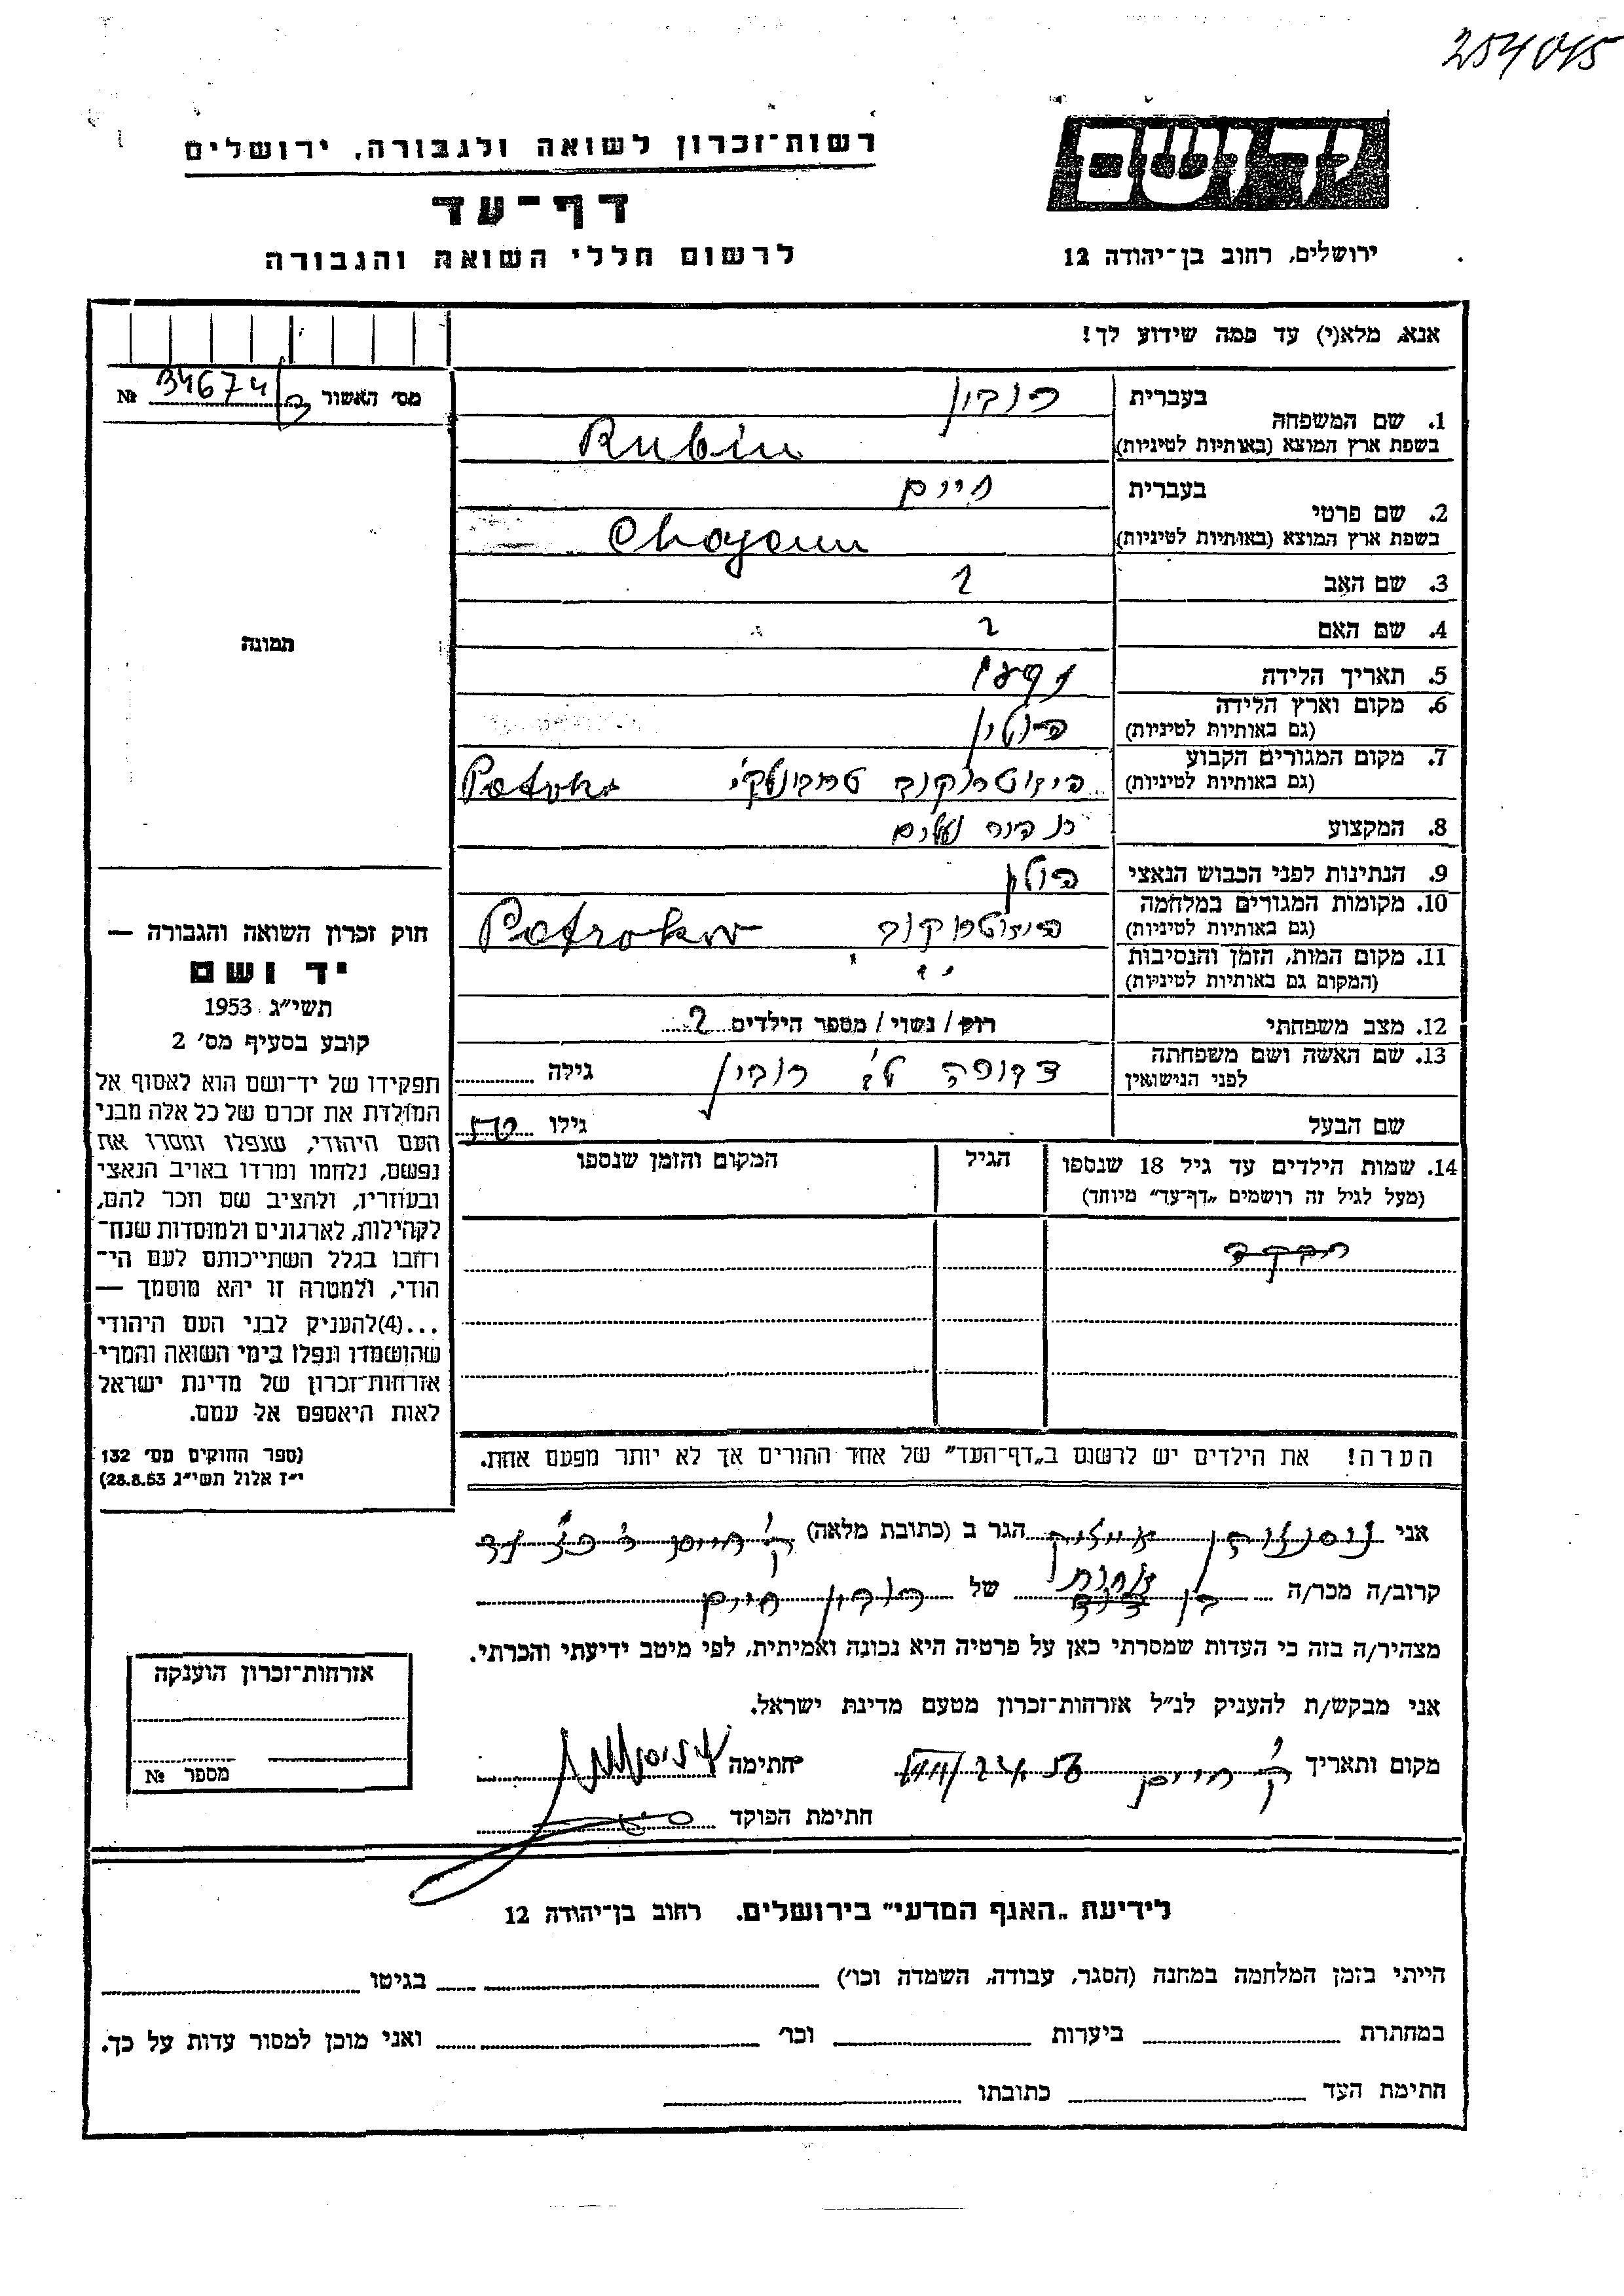 254045
רשות־זכרון לשואה ולגבורה, ירושלים
דף־עד
לרשום חללי השואה והגבורה
ידושם
ירושלים, רחוב בן־יהודה 12
אנא, מלא(י) עד כמה שידוע לך!
מס׳ האשור 34674 №
בעברית רובין
1. שם המשפחה
בשפת ארץ המוצא (באותיות לטיניות) Rubin
בעברית חיים
2. שם פרטי
בשפת ארץ המוצא (באותיות לטיניות)
3. שם האב ?
4. שם האם ?
תמונה
5. תאריך הלידה
6. מקום וארץ הלידה
(גם באותיות לטיניות) פולין
7. מקום המגורים הקבוע
(גם באותיות לטיניות) פיוטרוקוב טריבונלסקי
8. המקצוע נעלים
9. הנתינות לפני הכבוש הנאצי פולין
10. מקומות המגורים במלחמה
(גם באותיות לטיניות) פיוטרוקוב Petrokow
11. מקום המות, הזמן והנסיבות
(המקום גם באותיות לטיניות)
12. מצב משפחתי רוק / נשוי / מספר הילדים 2
13. שם האשה ושם משפחתה
לפני הנישואין רובין גילה
שם הבעל גילו
14. שמות הילדים עד גיל 18 שנספו הגיל המקום והזמן שנספו
(מעל לגיל זה רושמים „דף־עד״ מיוחד)
הערה! את הילדים יש לרשום ב„דף־העד״ של אחד ההורים אך לא יותר מפעם אחת.
חוק זכרון השואה והגבורה —
יד ושם
תשי״ג 1953
קובע בסעיף מס׳ 2
תפקידו של יד־ושם הוא לאסוף אל
המולדת את זכרם של כל אלה מבני
העם היהודי, שנפלו ומסרו את
נפשם, נלחמו ומרדו באויב הנאצי
ובעוזריו, ולהציב שם וזכר להם,
לקהילות, לארגונים ולמוסדות שנח־
רחבו בגלל השתייכותם לעם הי־
הודי, ולמטרה זו יהא מוסמך —
...(4)להעניק לבני העם היהודי
שהושמדו ונפלו בימי השואה והמרי
אזרחות־זכרון של מדינת ישראל
לאות היאספם אל עמם.
(ספר החוקים מס׳ 132
י״ז אלול תשי״ג 28.8.53)
אני הגר ב (כתובת מלאה)
קרוב/ה מכר/ה בן של רובין חיים
מצהיר/ה בזה כי העדות שמסרתי כאן על פרטיה היא נכונה ואמיתית, לפי מיטב ידיעתי והכרתי.
אני מבקש/ת להעניק לנ״ל אזרחות־זכרון מטעם מדינת ישראל.
מקום ותאריך ק׳ חיים חתימה
חתימת הפוקד
אזרחות־זכרון הוענקה
מספר №
לידיעת „האגף המדעי״ בירושלים. רחוב בן־יהודה 12
הייתי בזמן המלחמה במחנה (הסגר, עבודה, השמדה וכו׳) בגיטו
במחתרת ביערות וכו׳ ואני מוכן למסור עדות על כך.
חתימת העד כתובתו